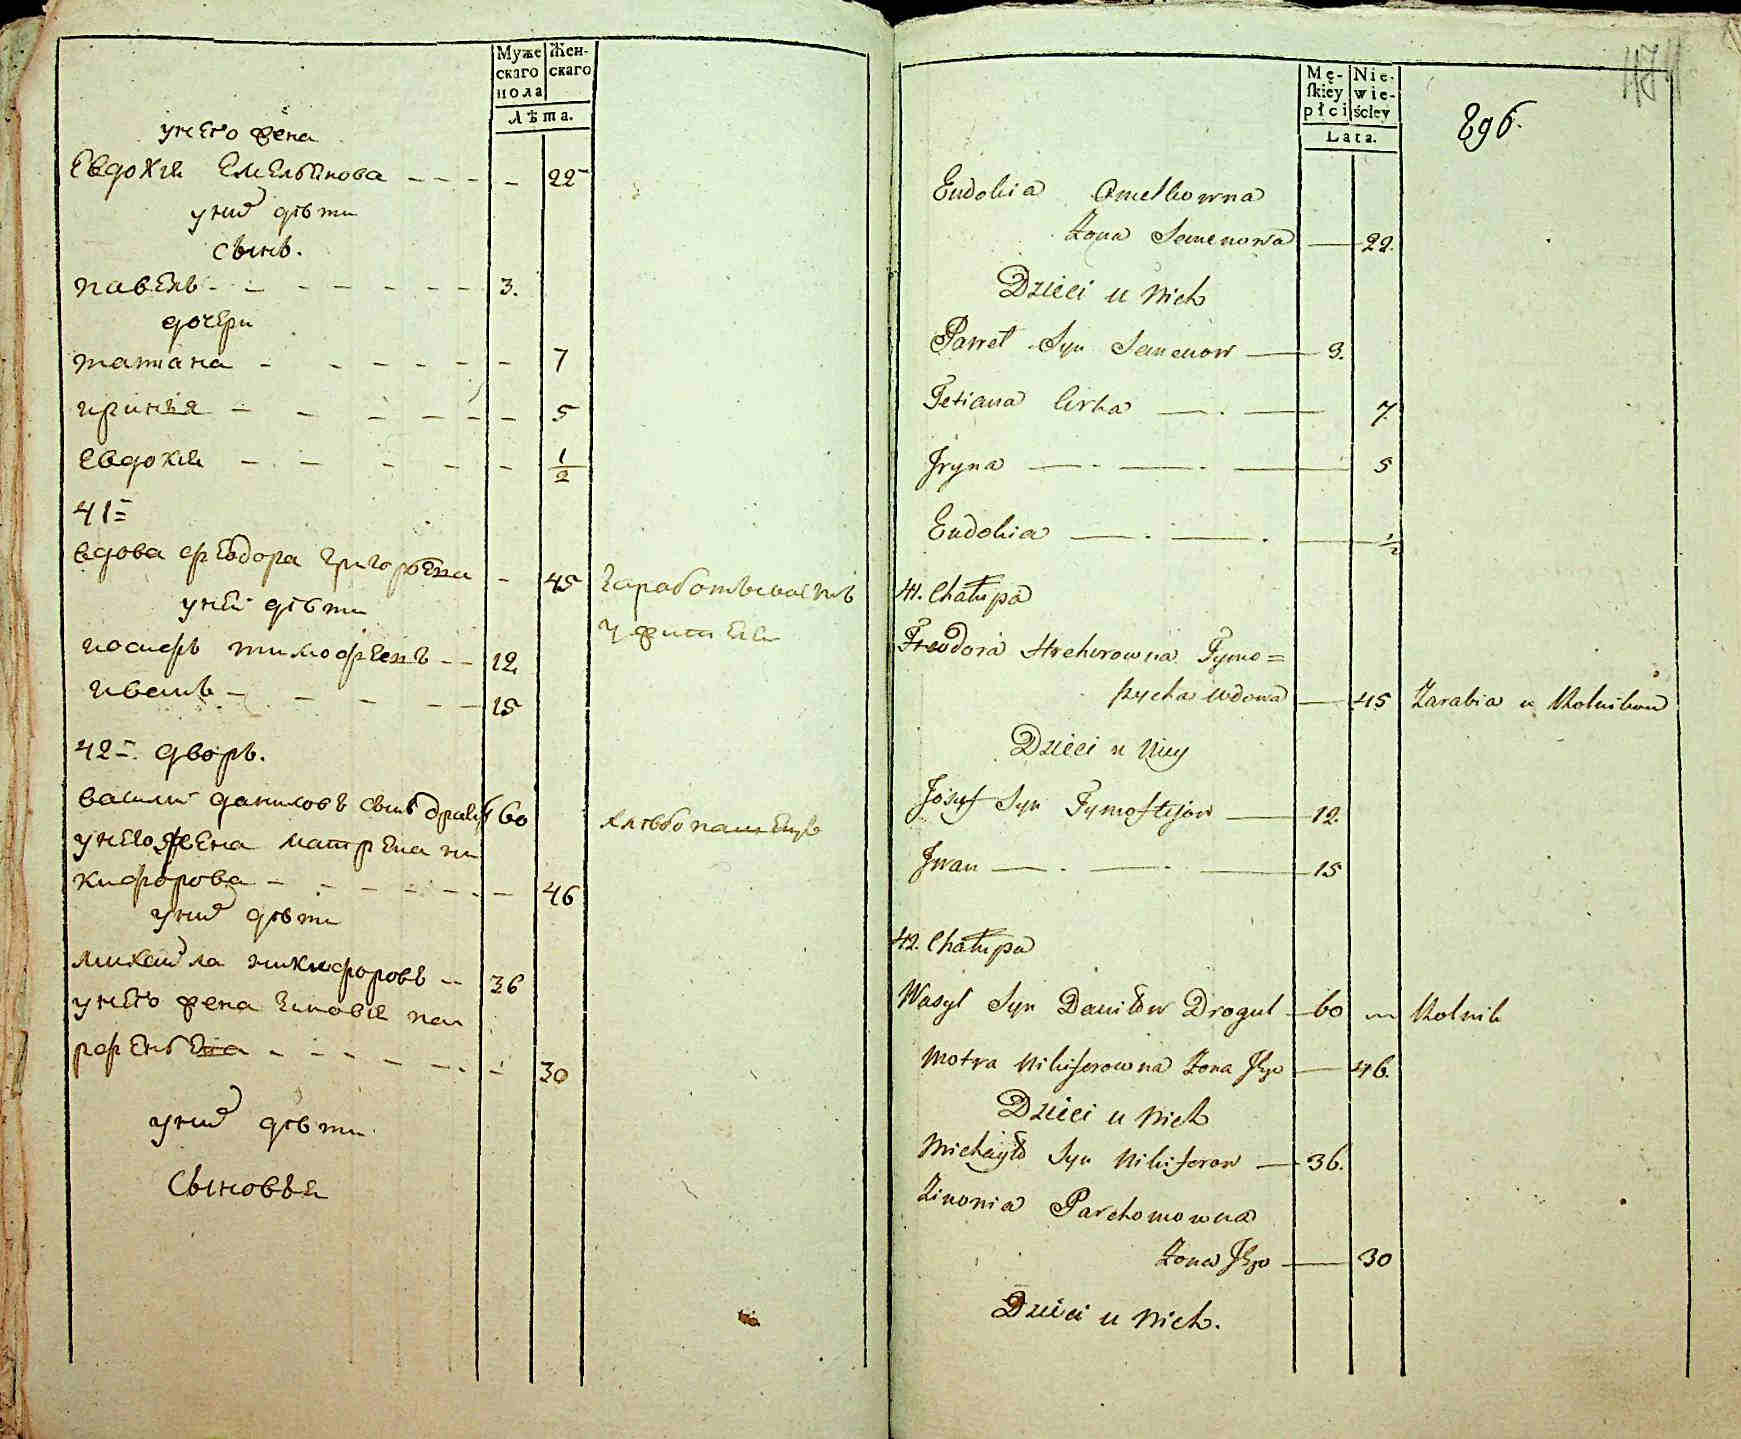 Муже
скаго
пола
Жен-
скаго
Лѣта.
у него жена
Евдокия Емельянова - - - - 22
у них дѣти
сынъ.
павелъ - - - - - - 3.
дочери
татиана - - - - - - 7
ирина - - - - - - 5
евдокия - - - - - - 1/2
41
вдова феодора григорьева - 45 зарабатываетъ
у ней дѣти
иосифъ тимофеевъ - - 12
иванъ - - - - - 15
42 дворъ.
василий даниловъ сынъ 60 хлѣбопашецъ
у него жена матрена ни
кифорова - - - - - - 46
у них дѣти
михайла никифоровъ - - 36
у него жена зиновия па
рфеньева - - - - - - 30
у них дѣти
сыновья
Mę-
skiey
płci
Nie-
wie-
ściey
Lata.
896.
Eudokia Omelkowna
Żona Semenowa — 22.
Dzieci u Nich
Paweł Syn Semenow — 3.
Tetiana Corka — . — 7.
Jryna — . — . — 5
Eudokia — . — . — 1/2
41. Chałupa
Feodora Hrehorowna Tymo=
szycha wdowa — 45 Zarabia u Rolnikow
Dzieci u Niey
Jozyf Syn Tymoftejow — 12.
Jwan — . — . — 15
42. Chałupa
Wasyl Syn Daniłow Drogul — 60 — Rolnik
Motra Nikiforowna Żona Jego — 46.
Dzieci u Nich
Michayło Syn Nikiforow — 36.
Zinonia Parchomowna
Żona Jego — 30
Dzieci u Nich.